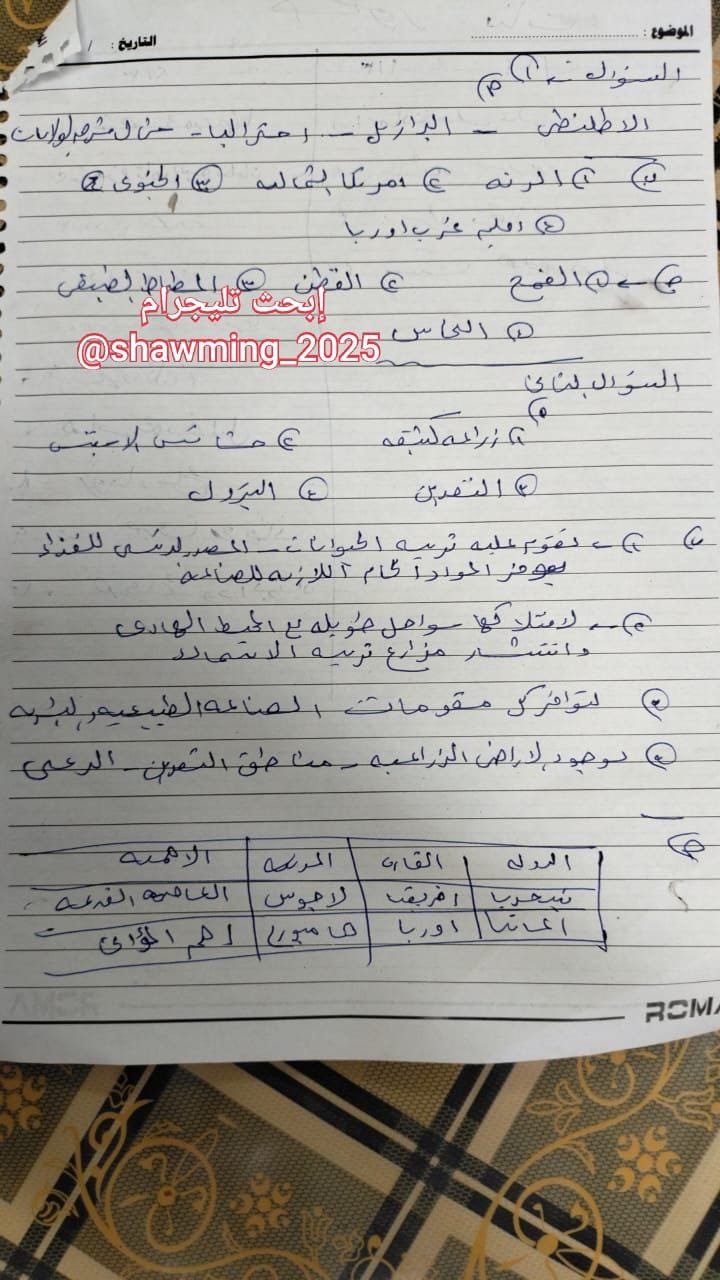 الموضوع : التاريخ : /
السؤال ١
الاطلنطى - البرازيل - استراليا - شمال شرق لولايات
ب) ١) الرنه ٢) امريكا الشماليه ٣) الجنوبى
٤) اقليم غرب اوربا
ج) ← ١) القمح ٢) القطن ٣) المطاط لطبيعى
٤) النحاس
إبحث تليجرام
@shawming_2025
السؤال لثانى
١) زراعه كثيفه ٢) حشائش الاستبس
٣) التعدين ٤) البترول
ب) ١) - تقوم عليه تربيه الحيوانات - المصدر لرئيسى للغذاء
يوفر المواد الخام اللازمه للصناعة
٢) - لامتلاكها سواحل طويله مع المحيط الهادى
وانتشار مزارع تربية الاسماك
٣) لتوافر كل مقومات الصناعه الطبيعيه ولبشريه
٤) لوجود لاراضى الزراعيه - مناطق التعدين - الرعى
ج)
الدوله القاره المدينه الاهميه
نيجيريا افريقيا لاجوس العاصمه القديمه
المانيا اوربا هامبورج اهم الموانى
ROMA